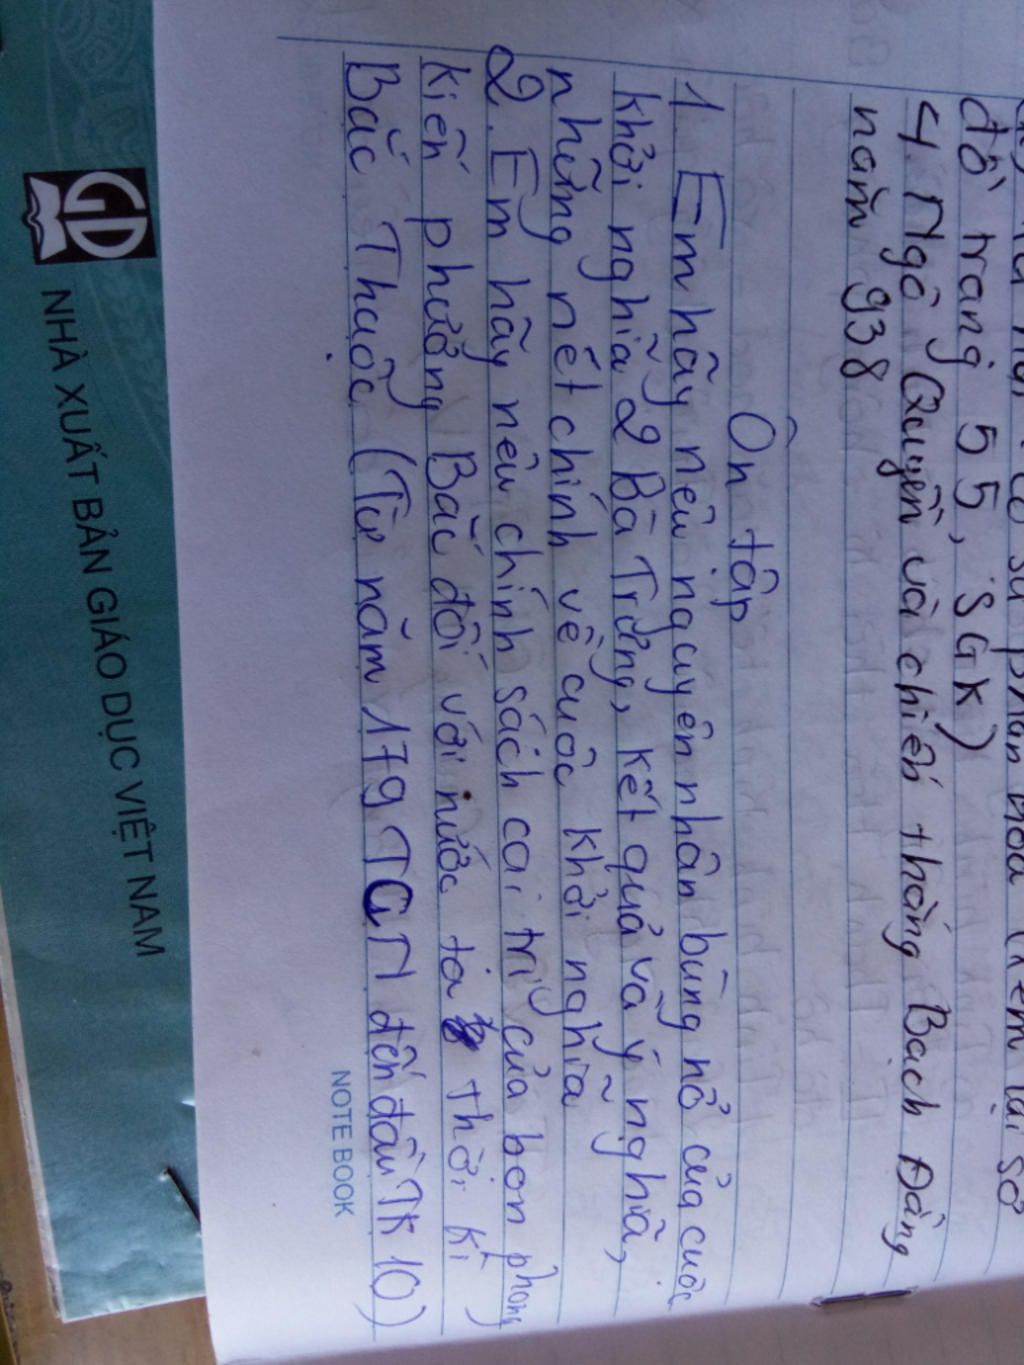 đồ trang 55, SGK)
4. Ngô Quyền và chiến thắng Bạch Đằng
năm 938
Ôn tập
1. Em hãy nêu nguyên nhân bùng nổ của cuộc
khởi nghĩa 2 Bà Trưng, kết quả và ý nghĩa,
những nét chính về cuộc khởi nghĩa
2. Em hãy nêu chính sách cai trị của bọn phong
kiến phương Bắc đối với nước ta thời kì
Bắc Thuộc (Từ năm 179 TCN đến đầu TK 10)
NOTE BOOK
GD
NHÀ XUẤT BẢN GIÁO DỤC VIỆT NAM